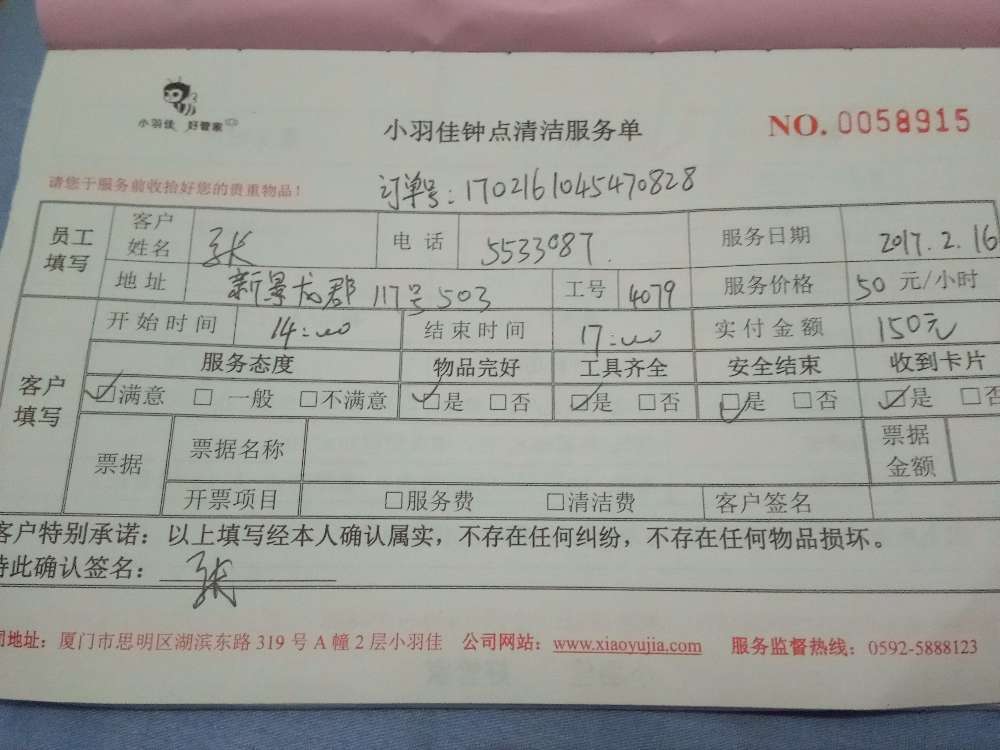 小羽佳 好管家
小羽佳钟点清洁服务单
NO. 0058915
请您于服务前收拾好您的贵重物品！
订单号：1702161045470828
员工填写 客户姓名 张 电话 5533087. 服务日期 2017.2.16
地址 新景龙郡117号503 工号 4079 服务价格 50元/小时
客户填写 开始时间 14:00 结束时间 17:00 实付金额 150元
服务态度 物品完好 工具齐全 安全结束 收到卡片
☑满意 □一般 □不满意 ☑是 □否 ☑是 □否 ☑是 □否 ☑是 □否
票据 票据名称 票据金额
开票项目 □服务费 □清洁费 客户签名
客户特别承诺：以上填写经本人确认属实，不存在任何纠纷，不存在任何物品损坏。
特此确认签名：张
司地址：厦门市思明区湖滨东路319号A幢2层小羽佳 公司网站：www.xiaoyujia.com 服务监督热线：0592-5888123